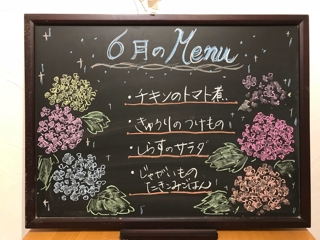 6月のMenu
・チキンのトマト煮
・きゅうりのつけもの
・しらすのサラダ
・じゃがいもの
たきこみごはん